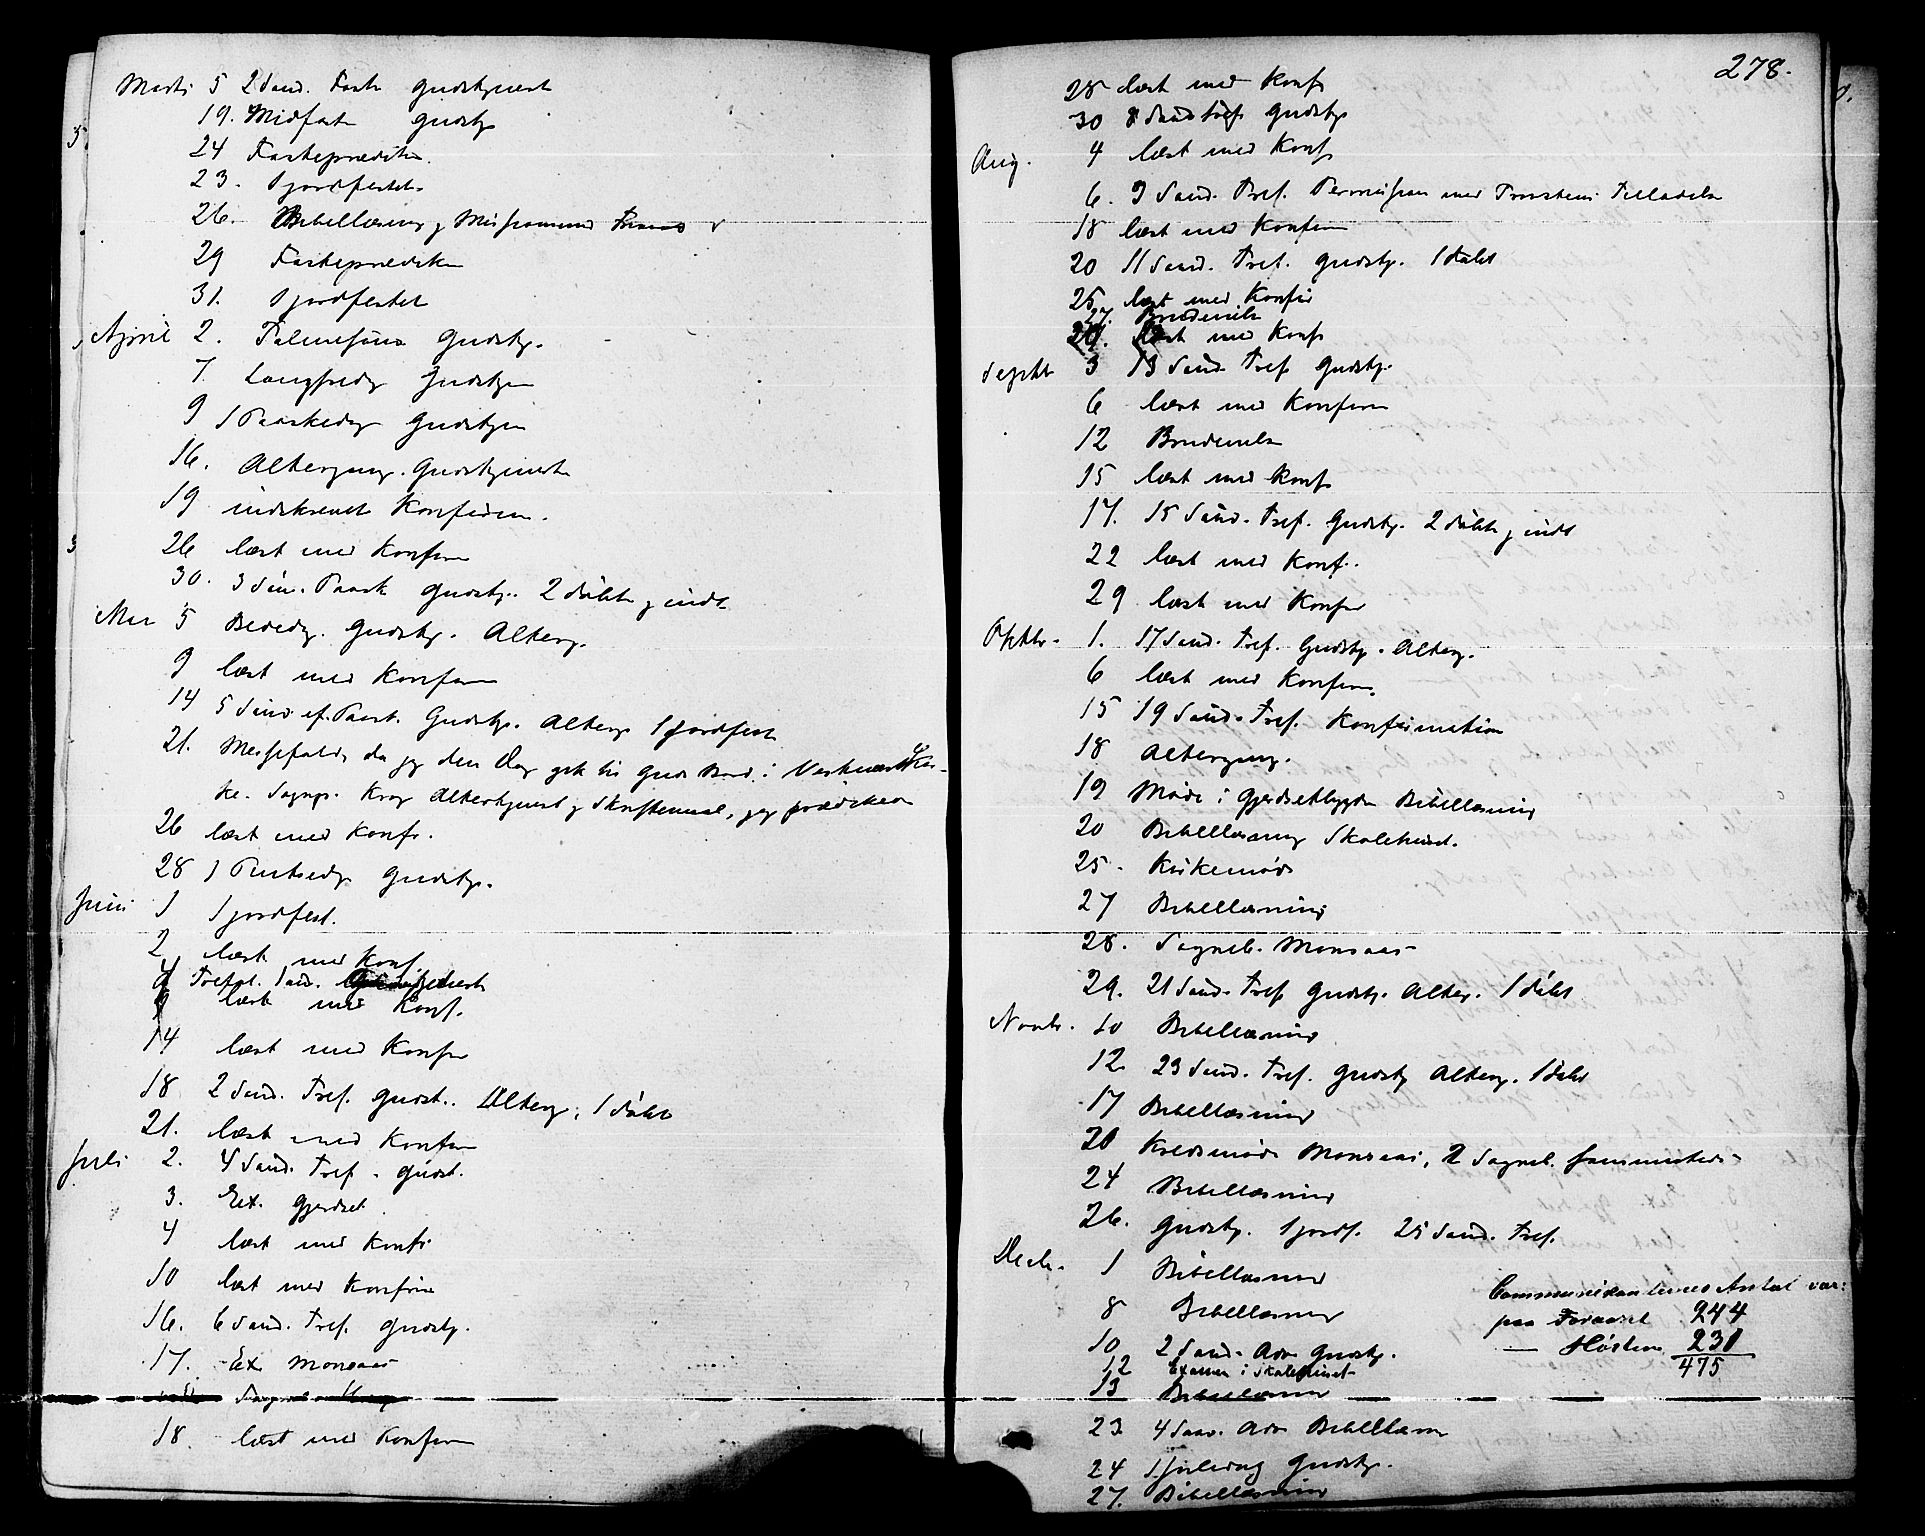 Marts 5 2 Sønd. Faste Gudstjeneste
19. Midfaste Gudstj
24 Fasteprædiken.
23. 1 jordfæstet.
26. Bibellæsning g Missions
29 Fasteprædiken
31. 1 jordfæstet
April 2. Palmesøn Gudstj.
7. Langfredag Gudstjen
9 1 Paaskedag Gudstjen
16. Altergang. Gudstjeneste
19 indskrevet Konfirm.
26 læst med Konfirm
30. 3 Søn. Paask Gudstj. 2 døbte g indt
Mai 5 Bededag. Gudstj. Alterg.
9 læst med Konfirm
14 5 Sønd. ef. Paask. Gudstj. Alterg 1 jordfæst
21. Messefald, da jeg den Dag gik til Guds Bord i
ke. Sognpr. Krag Altertjenest g Skriftemaal, jeg prædikede
26 læst med Konfr.
28 1 Pintsedag Gudstj.
Juni 1 1 jordfæst.
2 læst med Konf
4 Trefol. Sønd.
9 læst med Konf.
14 læst med Konfir
18 2 Sønd. Tref. Gudst.. Alterg. 1 døbt
21. læst med Konfirm
Juli 2. 4 Sønd. Tref. Gudst.
3. Ex. Gjerdset.
4 læst med Konfi
10 læst med Konfirm
16. 6 Sønd. Tref. Gudstj.
17. Ex. Monsaas
18. læst med Konfirm
278.
28 læst med Konf
30 8 Sønd Tref Gudstj
Aug. 4 læst med Konf
6. 9 Sønd. Tref. Permission med Provstens Tilladelse
18 læst med Konfirm
20 11 Sønd. Tref. Gudstj. 1 døbt
25 læst med Konfir
27. Brudevielse
29. læst med Konf
Septbr 3 13 Sønd. Tref Gudstj.
6 læst med Konfirm
12 Brudevielse
15 læst med Konf
17. 15 Sønd. Tref. Gudstj. 2 døbte g indt
22 læst med Konf.
29 læst med Konfir
Oktbr. 1. 17 Sønd. Tref. Gudstj. Alterg.
6 læst med Konfirm.
15 19 Sønd. Tref. Konfirmation
18 Altergang.
19 Møde i Gjerdsetbygden Bibellæsning
20 Bibellæsning Skolehuset.
25. Kirkemøde
27 Bibellæsning
28. Sogneb. Monsaas
29. 21 Sønd. Tref Gudstj. Alterg. 1 døbt
Novbr. 10 Bibellæsning
12 23 Sønd. Tref. Gudstj Alterg. 1 døbt
17 Bibellæsning
20 Kredsmøde Monsaas, 2 Sogneb.
24 Bibellæsning
26. Gudstj. 1 jordf. 25 Sønd. Tref.
Decb. 1 Bibellæsning
8 Bibellæsning
10 2 Sønd. Adv Gudstj.
12 Examen i Skolehuset
13 Bibellæsning
23 4 Sønd. Adv Bibellæsn
24 Gudstj.
27. Bibellæsning
Communikanternes Antal var:
paa Foraaret 244
— Høsten 231
475